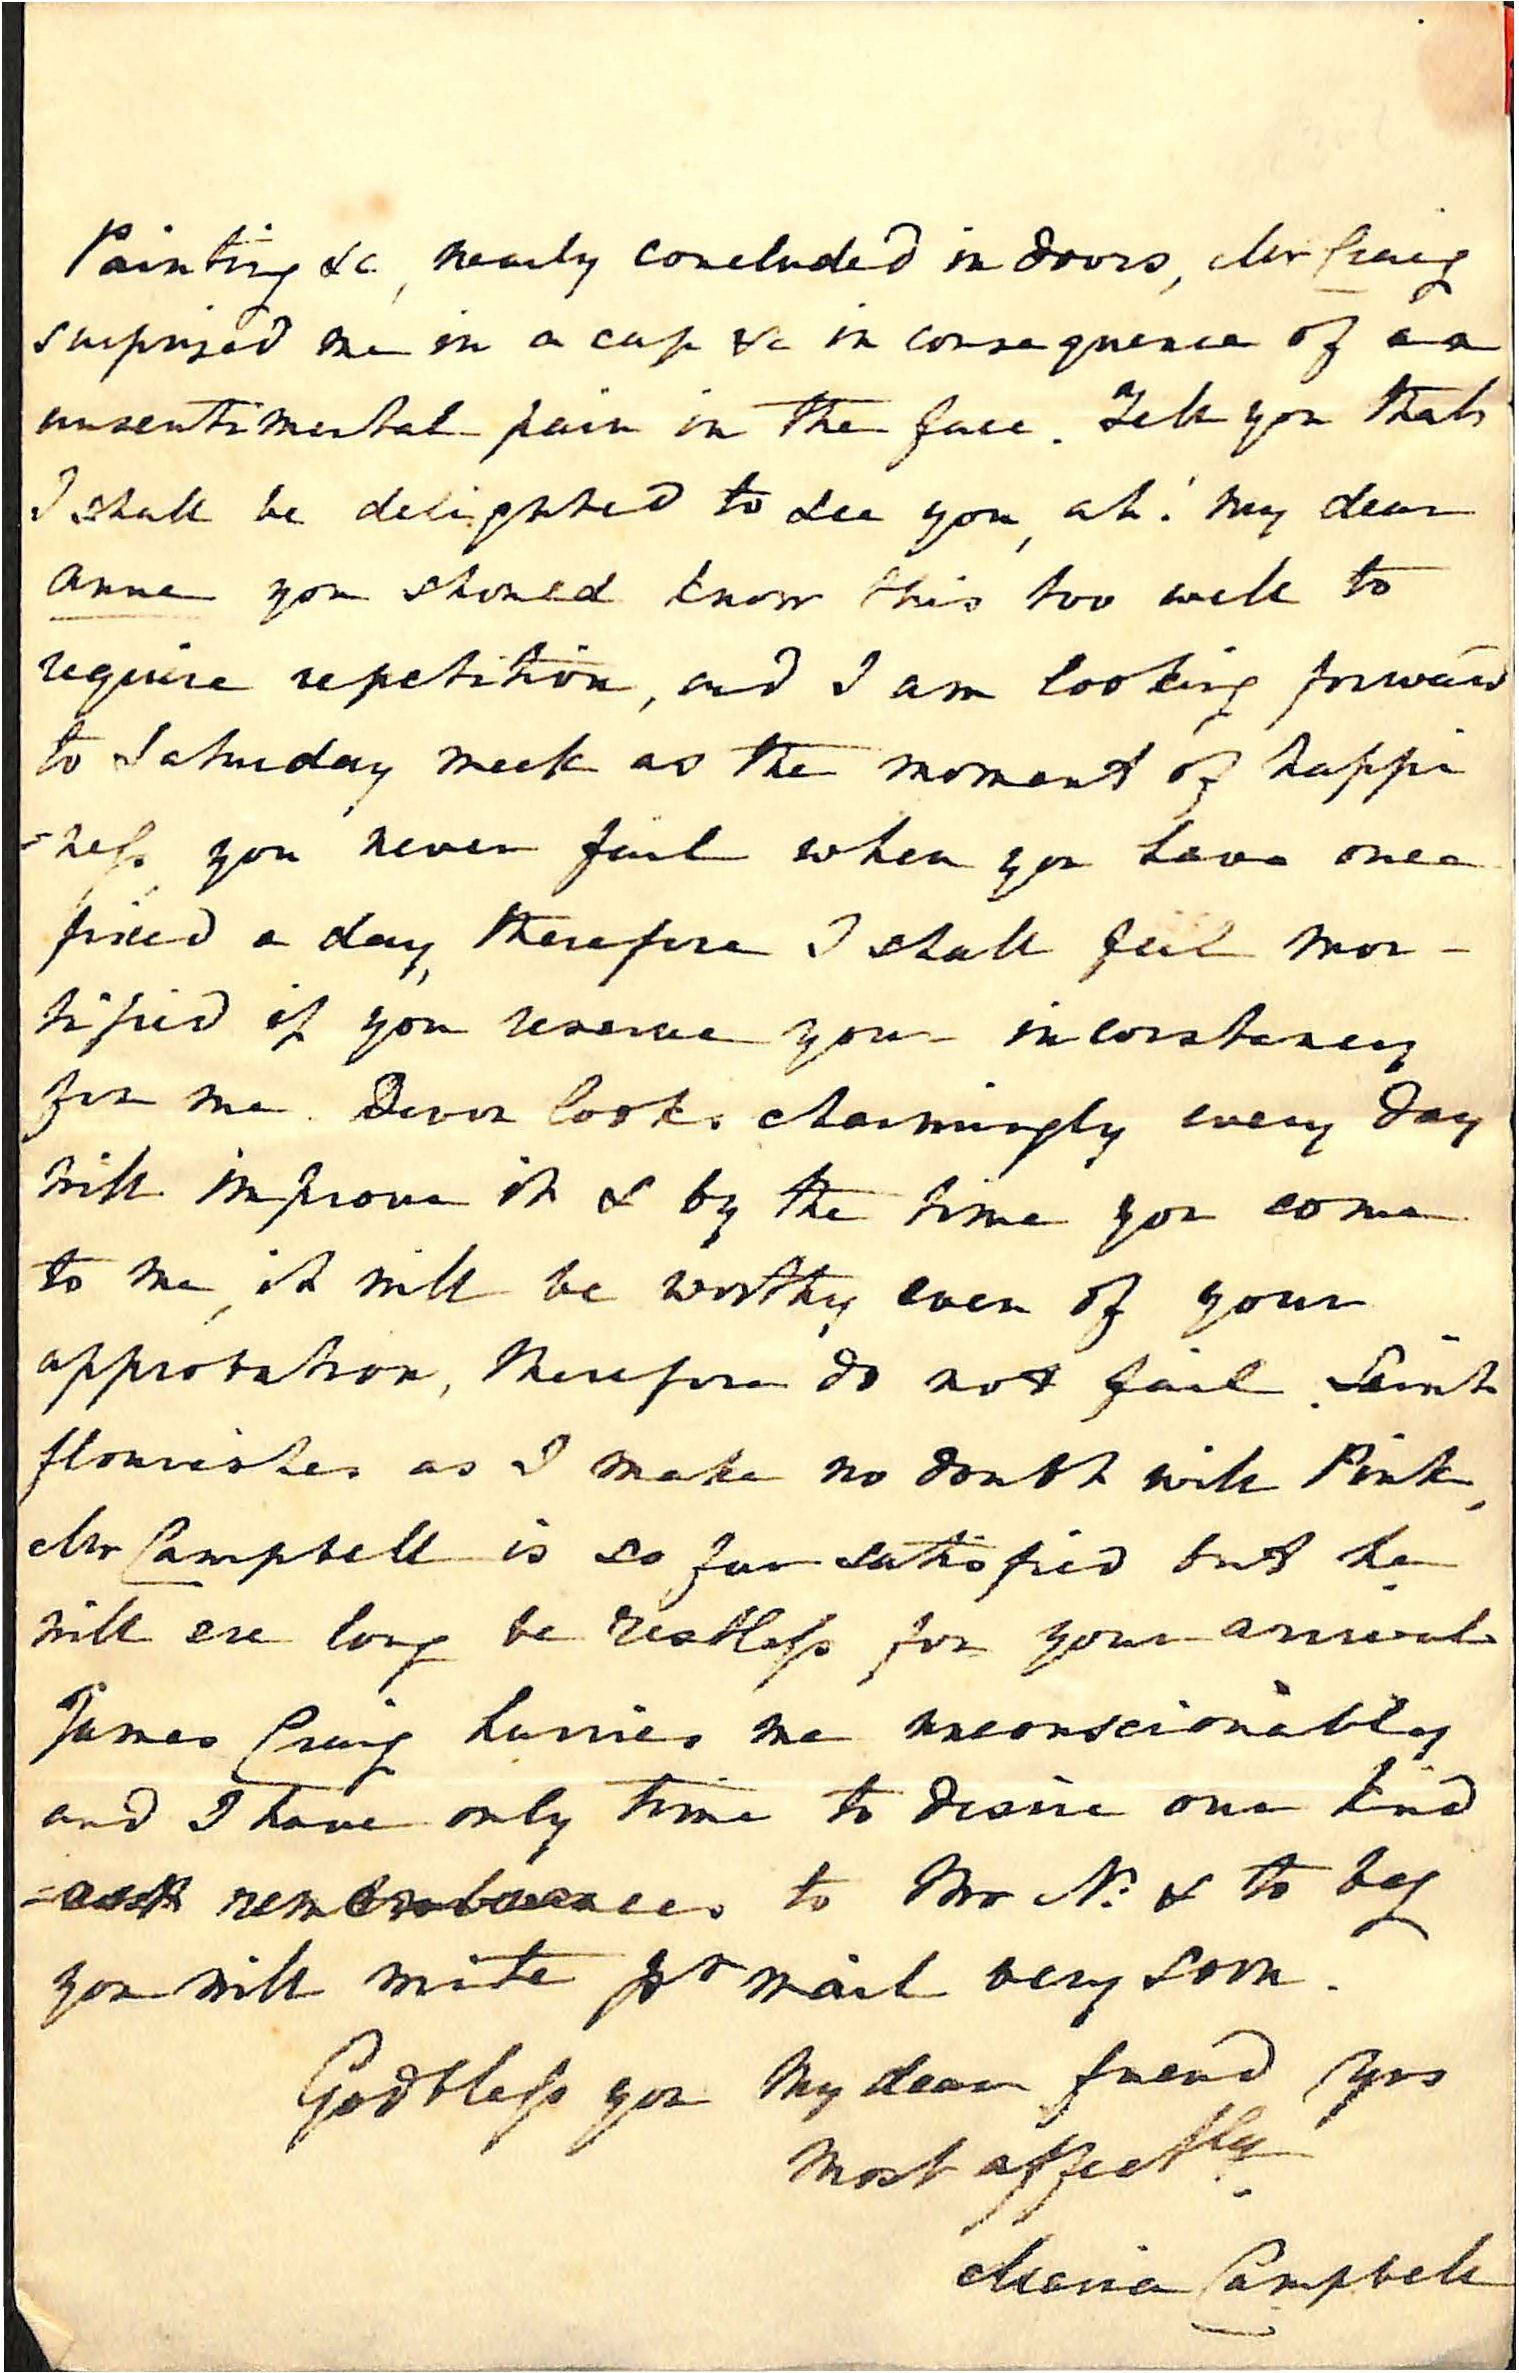 Painting &c, nearly concluded in doors, Mr Craig
surprized me in a cap &c in consequence of an
unsentimental pain in the face. Tell you that
I shall be delighted to see you, ah! my dear
Anne you should know this too well to
require repetition, and I am looking forward
to Saturday week as the moment of happi
=neſs, you never fail when you have once
fixed a day, therefore I shall feel mor-
tified if you reserve your inconstancy
for me. Devon looks charmingly every day
will improve it & by the time you come
to me, it will be worthy even of your
approbation, therefore do not fail.
flourishes as I make no doubt will Pink,
Mr Campbell is so far satisfied but he
will ere long be restleſs for your arrival
James Craig hurries me unconscionably
and I have only time to desire our kind
=est remembrances to Mr N. & to beg
you will write pr mail very soon.
God bleſs you my dear friend yrs
most affectly.
Maria Campbell